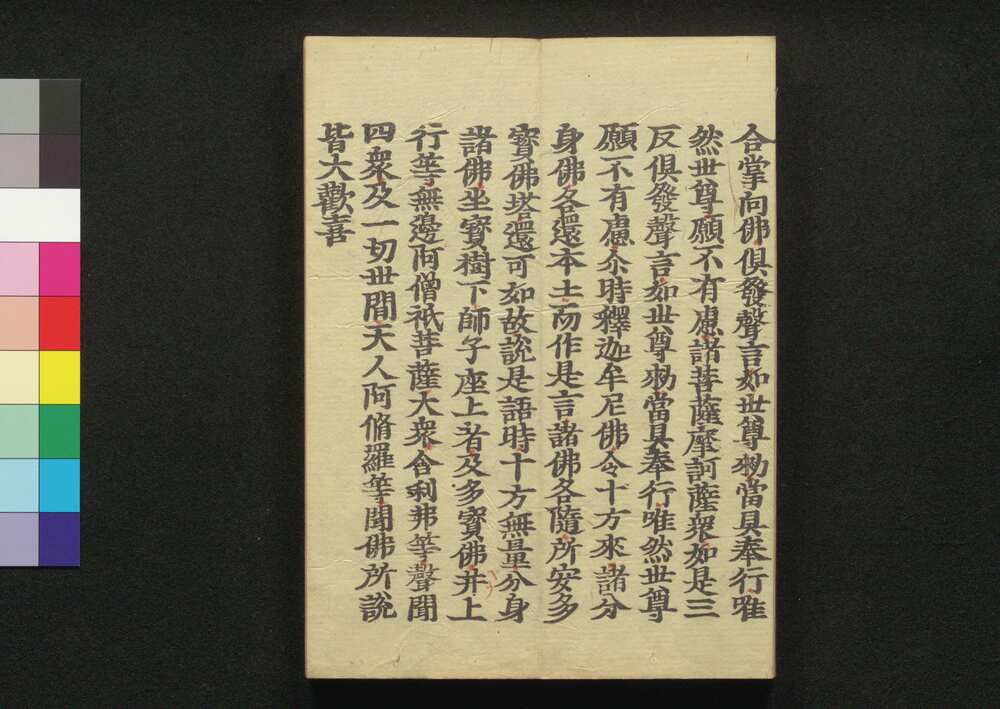 合掌向佛俱發聲言如世尊勑當具奉行唯
然世尊願不有慮諸菩薩摩訶薩衆如是三
反俱發聲言如世尊勑當具奉行唯然世尊
願不有慮尒時釋迦牟尼佛令十方來諸分
身佛各還本土而作是言諸佛各隨所安多
寳佛塔還可如故說是語時十方無量分身
諸佛坐寳樹下師子座上者及多寳佛并上
行等無邊阿僧祇菩薩大衆舍利弗等聲聞
四衆及一切世間天人阿脩羅等聞佛所說
皆大歡喜